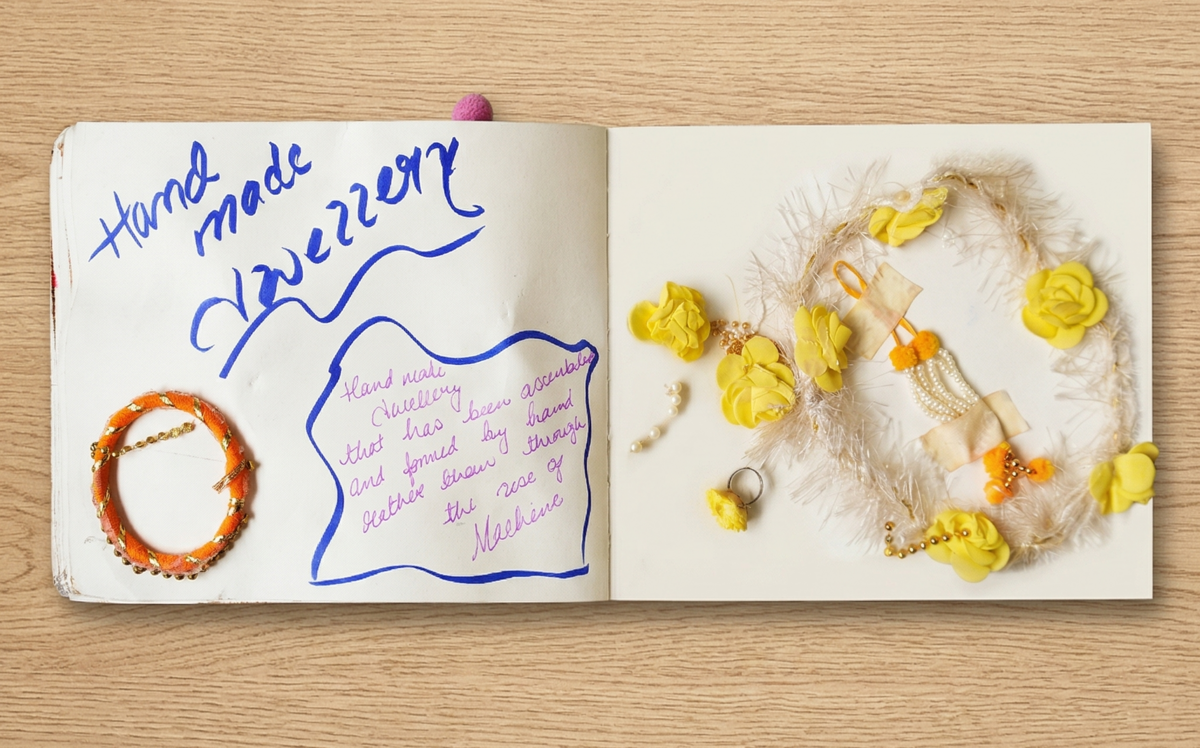 Hand
made
Jewezzery
Hand made
Jwellery
that has been ascembled
and formed by hand
reather than through
the use of
Machiene